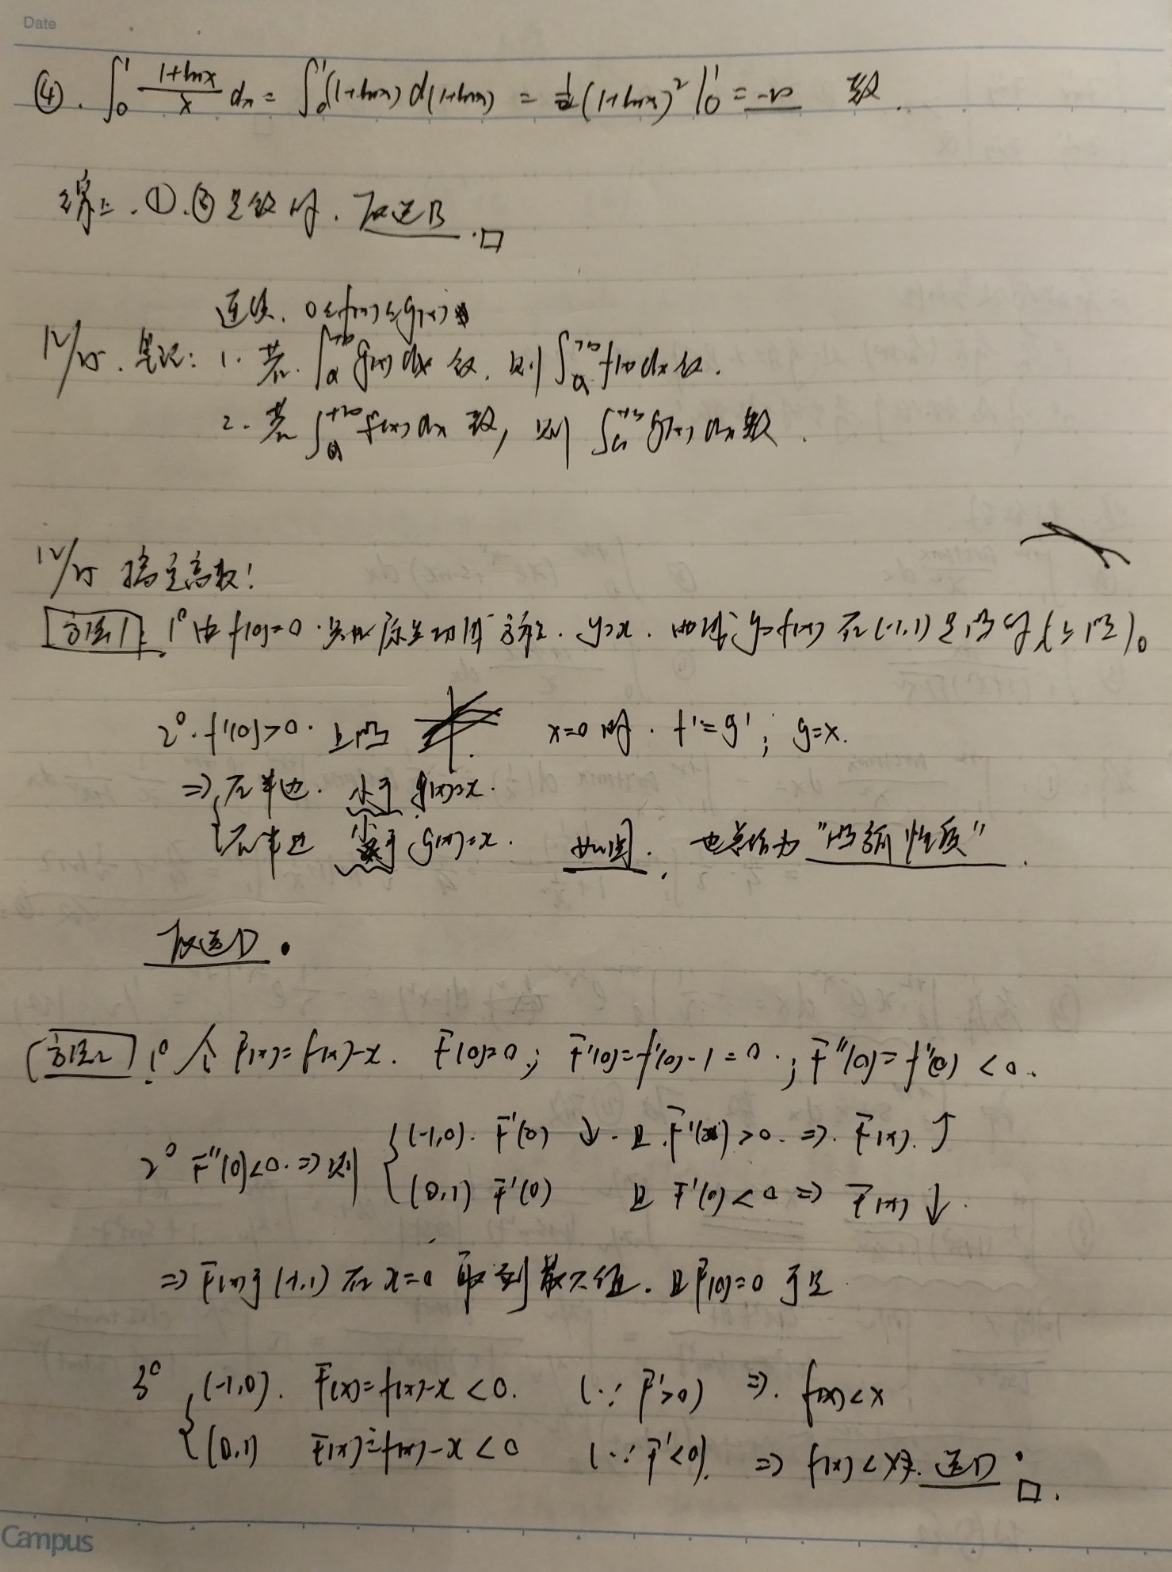 Date
④. ∫₀¹ (1+lnx)/x dx = ∫₀¹ (1+lnx) d(1+lnx) = ½(1+lnx)² |₀¹ = -∞ 散.
综上. ①.② 是敛的. 故选B. □
连续. 0≤f(x)≤g(x)
12/25. 笔记: 1. 若 ∫ₐ^{+∞} g(x)dx 敛. 则 ∫ₐ^{+∞} f(x)dx 敛.
2. 若 ∫ₐ^{+∞} f(x)dx 散, 则 ∫ₐ^{+∞} g(x)dx 散.
12/25 搞定高数!
方法1: 1° 由 f(0)=0 切线方程. y=x. 曲线 y=f(x) 在(-1,1)是凸的(上凸)。
2°. f'(0)>0. 上凸 x=0时. f'=g'; g=x.
⇒ 左半边. 小于 g(x)=x.
右半边 小于 g(x)=x. 如图. 也总结为 "凸弧性质".
故选D.
方法2: 1° 令 F(x)=f(x)-x. F(0)=0; F'(0)=f'(0)-1=0.; F''(0)=f''(0)<0.
2° F''(0)<0. ⇒ 则 { (-1,0). F'(0) ↓. 且 F'(x)>0. ⇒. F(x). ↑
(0,1) F'(0) 且 F'(0)<0 ⇒ F(x) ↓.
⇒ F(x)于(-1,1) 在 x=0 取到最大值. 且F(0)=0 于是
3° { (-1,0). F(x)=f(x)-x<0. (∵ F'>0) ⇒. f(x)<x
(0,1) F(x)=f(x)-x<0 (∵ F'<0). ⇒ f(x)<x. 选D. □.
Campus